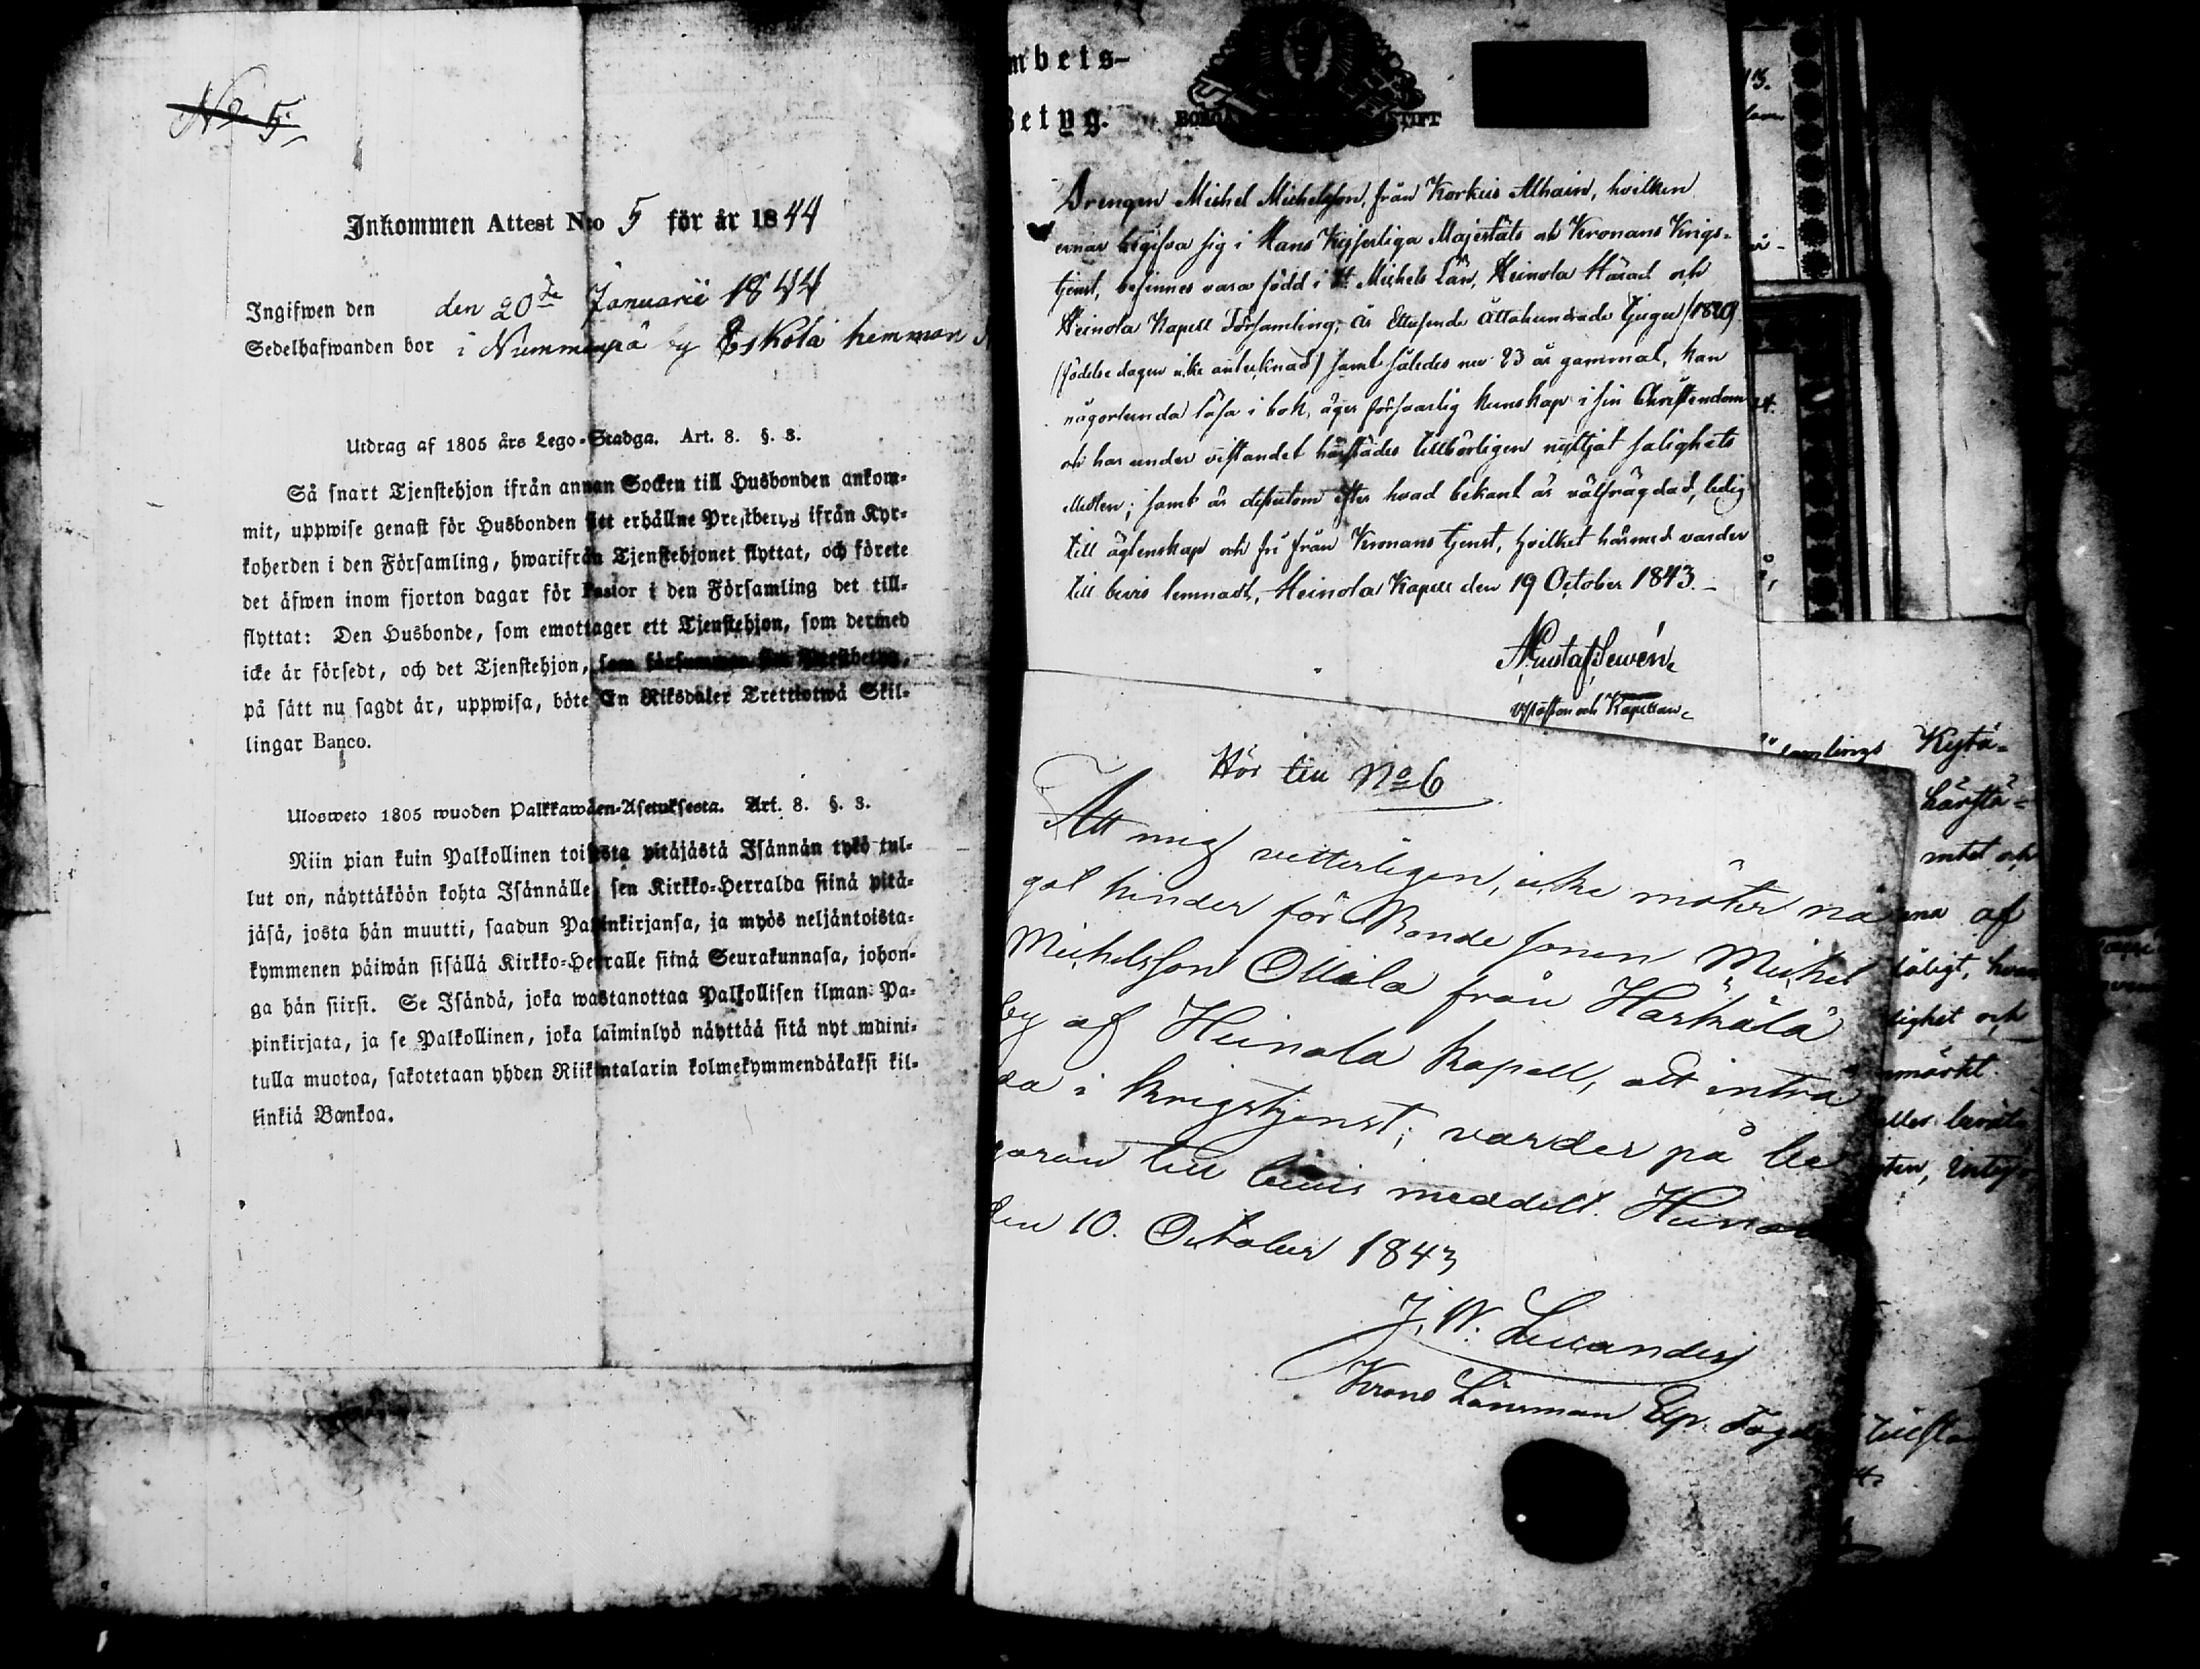 No 5.
Inkommen Attest N:o 5 för år 1844
Ingifwen den den 20de Januarii 1844
Sedelhafwanden bor i Nummenpä by Eskola hemman
Utdrag af 1805 års Lego-Stadga. Art. 8. §. 3.
Så snart Tjenstehjon ifrån annan Socken till Husbonden ankom-
mit, uppwise genast för Husbonden sitt erhållne Prestbetyg ifrån Kyr-
koherden i den Församling, hwarifrån Tjenstehjonet flyttat, och förete
det äfwen inom fjorton dagar för Pastor i den Församling det till-
flyttat: Den Husbonde, som emottager ett Tjenstehjon, som dermed
icke är försedt, och det Tjenstehjon, som försummar sitt Prestbetyg,
på sätt nu sagdt är, uppwisa, böte En Riksdaler Trettiotwå Skil-
lingar Banco.
Ulosweto 1805 wuoden Palkkawäen-Asetuksesta. Art. 8. §. 3.
Niin pian kuin Palkollinen toisesta pitäjästä Isännän tykö tul-
lut on, näyttäköön kohta Isännälle sen Kirkko-Herralda siinä pitä-
jäsä, josta hän muutti, saadun Papinkirjansa, ja myös neljäntoista-
kymmenen päiwän sisällä Kirkko-Herralle siinä Seurakunnasa, johon-
ga hän siirsi. Se Isändä, joka wastanottaa Palkollisen ilman Pa-
pinkirjata, ja se Palkollinen, joka laiminlyö näyttää sitä nyt maini-
tulla muotoa, sakotetaan yhden Riikintalarin kolmekymmendäkaksi kil-
linkiä Bankoa.
mbets-
Betyg.
BORGÅ STIFT
Drengen Michel Michelsson, från Korkeis Alhain, hvilken
ernar begifva sig i Hans Kejserliga Majestäts och Kronans Krigs-
tjenst, befinnes vara född i St Michels Län, Heinola Härad och
Heinola Kapell Församling, År Ettusende Åttahundrade tjugu /1820/
(födelse dagen icke antecknad) samt således nu 23 år gammal, kan
någorlunda läsa i bok, äger försvarlig kunskap i sin Christendom
och har under vistandet härstädes tillbörligen nyttjat salighets
Medlen; samt är dessutom efter hvad bekant är välfrägdad, ledig
till ägtenskap och fri från Kronans tjenst, hvilket härmed varder
till bevis lemnadt, Heinola Kapell den 19 October 1843.
Kapellan
Hör till No 6
Att mig vetterligen, icke möter nå
got hinder för Bonde sonen Michel
Michelsson Ollila från Härkälä
by af Heinola Kapell, att inträ
da i krigstjenst; varder på be
gäran till bevis meddelt. Heinola
den 10. October 1843
J. W. Lucander
Krono Länsman Exp. Fogde
Kytä-
härstä-
af
lighet och